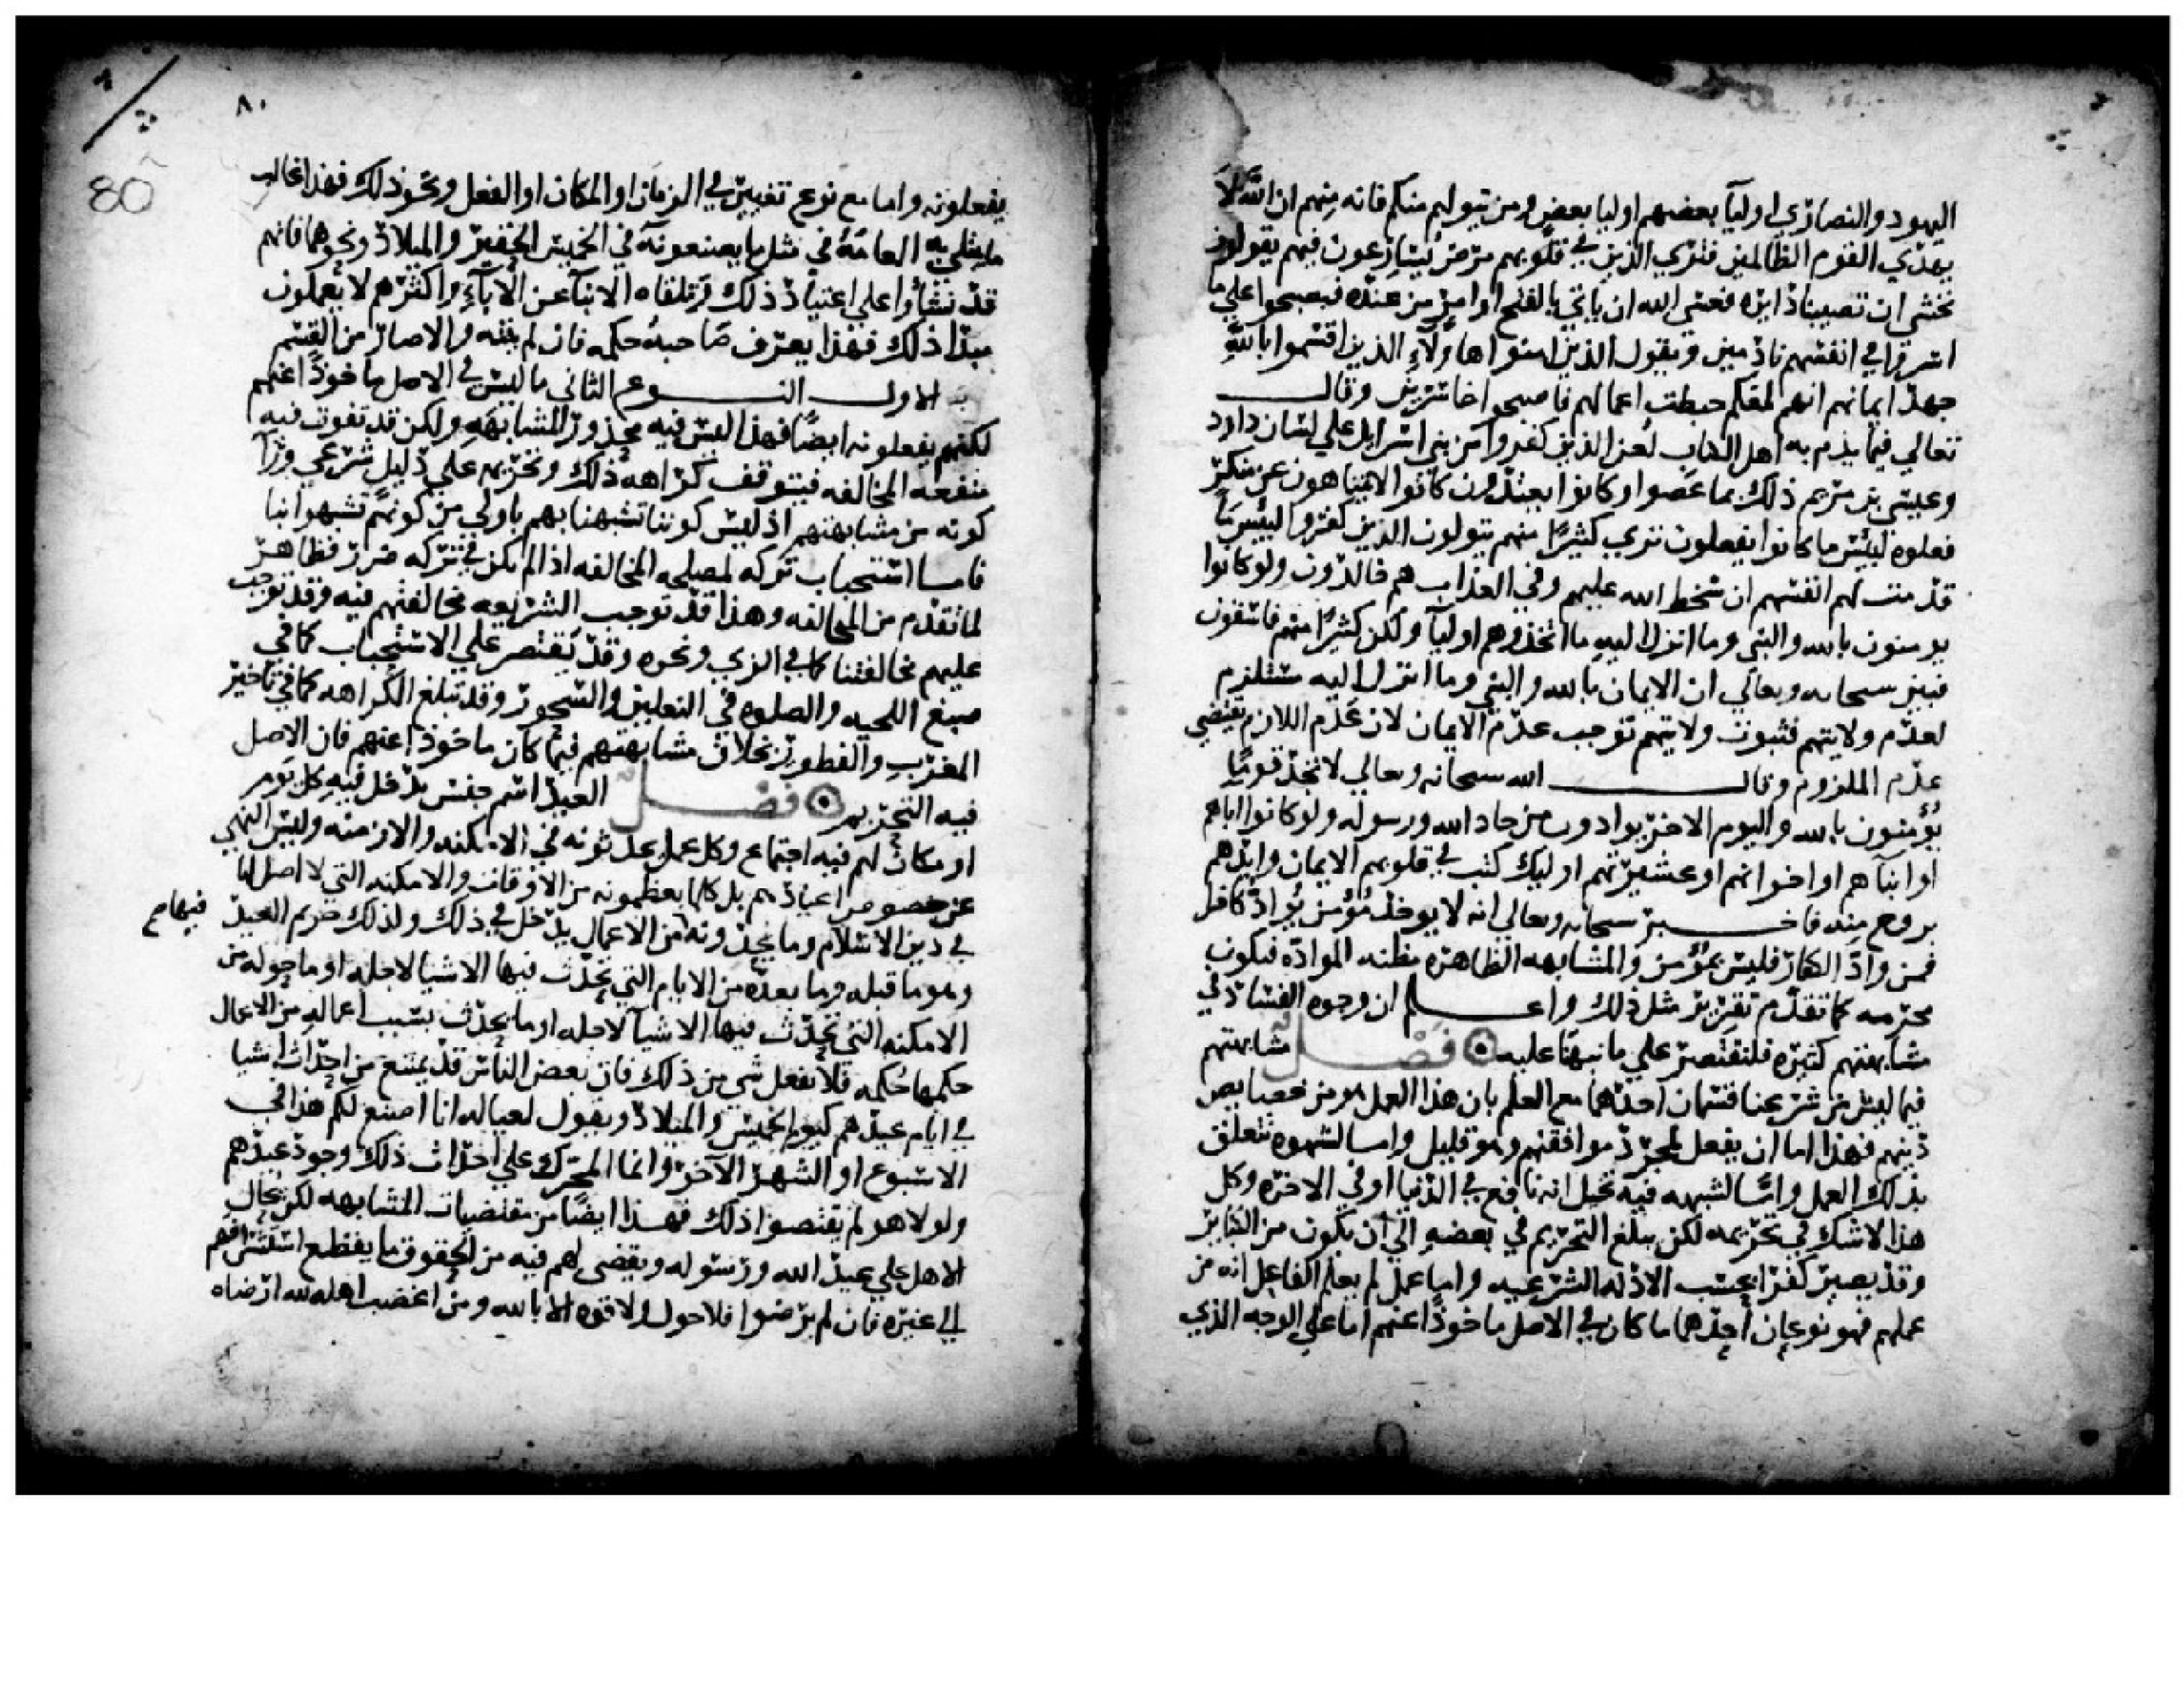 اليهود والنصاري اوليآ بعضهم اوليا بعض ومن يتولهم منكم فانه منهم ان الله لا
يهدي القوم الظالمين فتري الذين في قلوبهم مرض يسارعون فيهم يقولون
نخشى ان تصيبنا دايره فعسى الله ان ياتي بالفتح او امر من عنده فيصبحوا علي ما
اسروا في انفسهم نادمين ويقول الذين امنوا هاولآء الذين اقسموا بالله
جهد ايمانهم انهم لمعكم حبطت اعمالهم فاصبحوا خاسرين وقال
تعالي فيما يذم به اهل الكتاب لعن الذين كفروا من بني اسرايل علي لسان داود
وعيسى بن مريم ذلك بما عصوا وكانوا يعتدون كانوا لا يتناهون عن منكر
فعلوه لبيس ما كانوا يفعلون تري كثيرًا منهم يتولون الذين كفروا لبيس ما
قدمت لهم انفسهم ان سخط الله عليهم وفي العذاب هم خالدون ولو كانوا
يومنون بالله والنبي وما انزل اليه ما اتخذوهم اوليآ ولكن كثيرًا منهم فاسقون
فبين سبحانه وتعالي ان الايمان بالله والنبي وما انزل اليه مستلزم
لعدم ولايتهم فثبوت ولايتهم توجب عدم الايمان لان عدم اللازم يقتضي
عدم الملزوم وقال الله سبحانه وتعالي لا تجد قومًا
يؤمنون بالله واليوم الاخر يوادون من حاد الله ورسوله ولو كانوا اباهم
او ابنآهم او اخوانهم او عشيرتهم اوليك كتب في قلوبهم الايمان وايدهم
بروح منه فاخبر سبحانه وتعالى انه لا يوجد مؤمن يواد كافرا
فمن واد الكفار فليس بمؤمن والمشابهه الظاهره مظنه الموادّه فيكون
محرمه كما تقدم تقرير مثل ذلك واعلم ان وجوه الفساد في
مشابهتهم كثيره فلنقتصر علي ما نبهنا عليه فصل مشابهتهم
فيما ليس من شرعنا قسمان احدهما مع العلم بان هذا العمل هو من خصايص
دينهم فهذا اما ان يفعل لمجرد موافقتهم وهو قليل واما لشهوه تتعلق
بذلك العمل واما لشبهه فيه تخيل انه نافع في الدنيا او في الاخره وكل
هذا لا شك في تحريمه لكن يبلغ التحريم في بعضه الي ان يكون من الكباير
وقد يصير كفرا بحسب الادله الشرعيه واما عمل لم يعلم الفاعل انه من
عملهم فهو نوعان احدهما ما كان في الاصل ماخوذًا عنهم اما علي الوجه الذي
٨٠
80
يفعلونه واما مع نوع تغيير في الزمان او المكان او الفعل ونحو ذلك فهذا غالب
ما يبتلي به العامّه في مثل ما يصنعونه في الخميس الحقير والميلاد ونحوهما فانهم
قد نشأوا علي اعتياد ذلك وتلقاه الابنآ عن الآبآء واكثرهم لا يعلمون
مبدا ذلك فهذا يعرف صاحبه حكمه فان لم ينته والا صار من القسم
الاول النوع الثاني ما ليس في الاصل ماخوذًا عنهم
لكنهم يفعلونه ايضًا فهذا ليس فيه محذور المشابهه ولكن قد تفوت فيه
منفعه المخالفه فتتوقف كراهه ذلك وتحريمه علي دليل شرعي ورآ
كونه من مشابهتهم اذ ليس كوننا تشبهنا بهم باولي من كونهم تشبهوا بنا
فاما استحباب تركه لمصلحه المخالفه اذا لم يكن في تركه ضرر فظاهر
لما تقدم من المخالفه وهذا قد توجب الشريعه مخالفتهم فيه وقد توجب
عليهم مخالفتنا كما في الزي ونحوه وقد يقتصر علي الاستحباب كما في
صبغ اللحيه والصلوه في النعلين والسحور وقد تبلغ الكراهه كما في تاخير
المغرب والفطور بخلاف مشابهتهم فيما كان ماخوذا عنهم فان الاصل
فيه التحريم فصل العيد اسم جنس يدخل فيه كل يوم
او مكان لهم فيه اجتماع وكل عمل يحدثونه في الامكنه والازمنه وليس النهي
عن خصوص اعيادهم بل كلما يعظمونه من الاوقات والامكنه التي لا اصل لها
في دين الاسلام وما يحدثونه من الاعمال يدخل في ذلك ولذلك حريم العيد فيها مع
وهو ما قبله وما بعده من الايام التي تحدث فيها الاشيا لاجله او ما حوله من
الامكنه التي تحدث فيها الاشيآ لاجله او ما يحدث بسبب اعماله من الاعمال
حكمها حكمه فلا يفعل شي من ذلك فان بعض الناس قد يمتنع من احداث اشيا
في ايام عيدهم كيوم الخميس والميلاد ويقول لعياله انا اصنع لكم هذا في
الاسبوع او الشهر الآخر وانما المحرك علي احداث ذلك وجود عيدهم
ولولا هو لم يقتضوا ذلك فهذا ايضًا من مقتضيات المشابهه لكن يحال
الاهل علي عيد الله ورسوله ويقضي لهم فيه من الحقوق ما يقطع استشرافهم
الي غيره فان لم يرضوا فلا حول ولا قوه الا بالله ومن اغضب اهله لله ارضاه